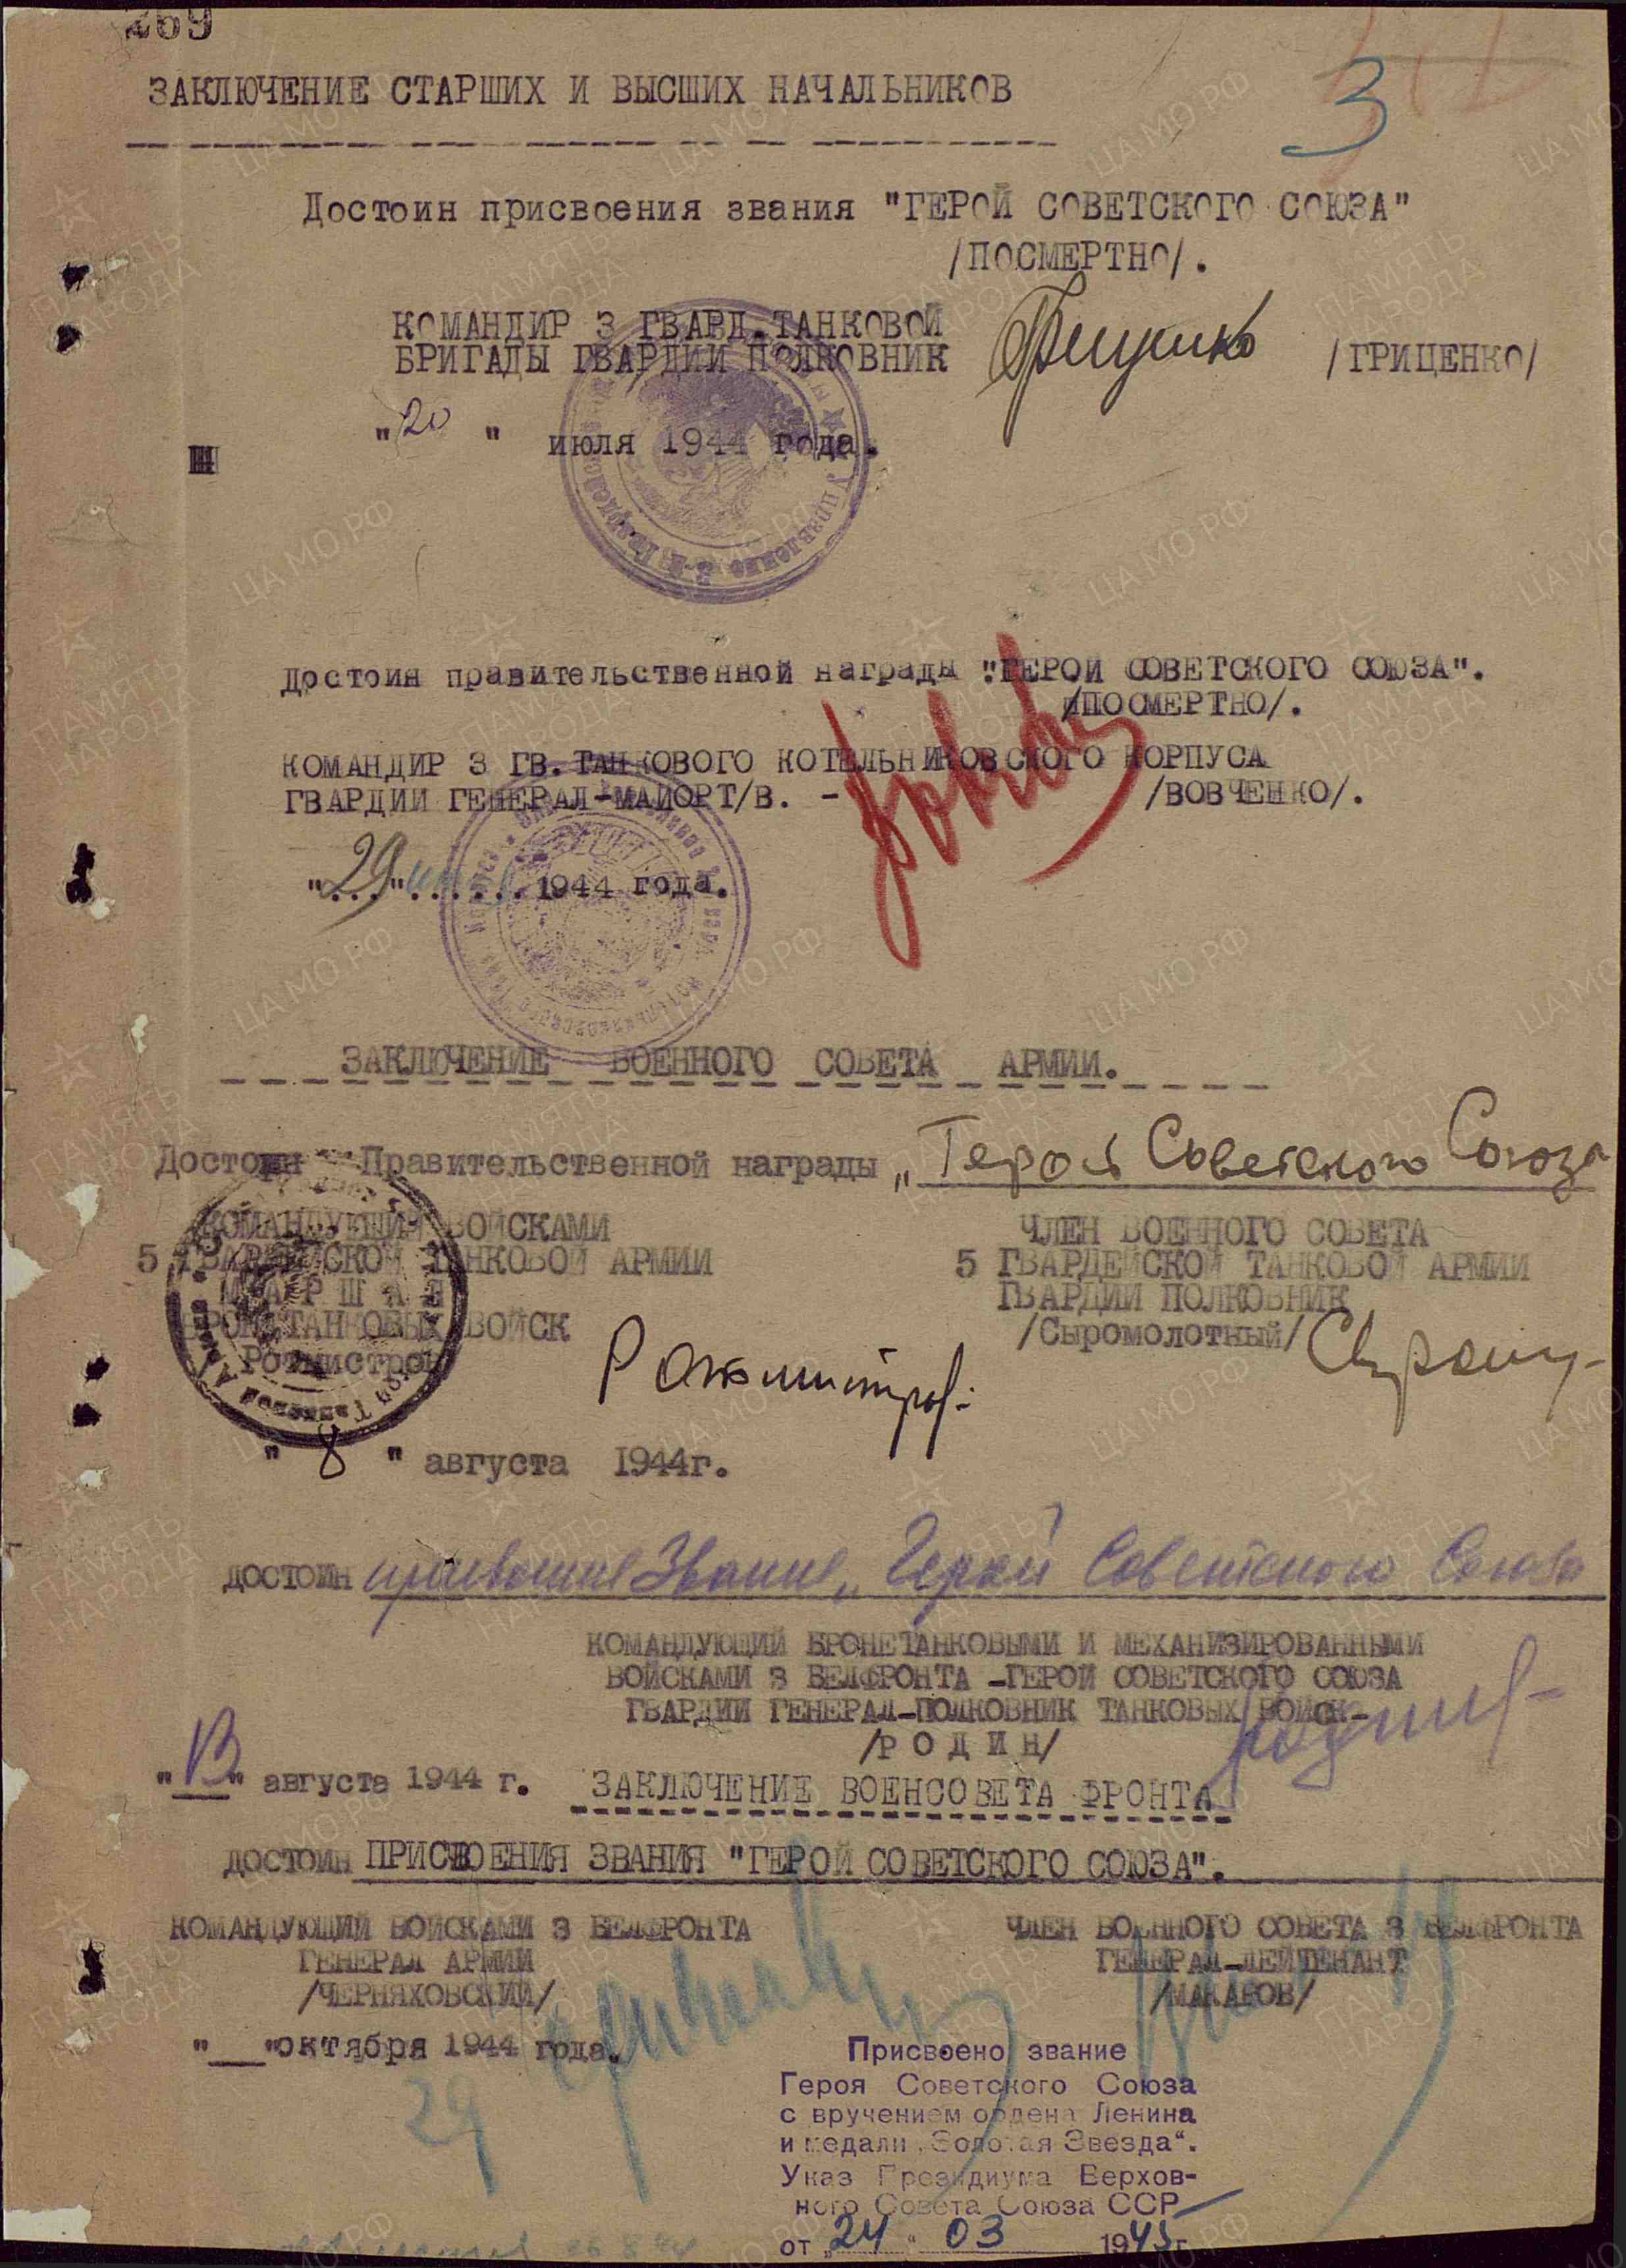 269
3
ЗАКЛЮЧЕНИЕ СТАРШИХ И ВЫСШИХ НАЧАЛЬНИКОВ
Достоин присвоения звания "ГЕРОЙ СОВЕТСКОГО СОЮЗА"
/ПОСМЕРТНО/.
КОМАНДИР 3 ГВАРД.ТАНКОВОЙ
БРИГАДЫ ГВАРДИИ ПОЛКОВНИК Гриценко /ГРИЦЕНКО/
"20" июля 1944 года.
Достоин правительственной награды "ГЕРОЙ СОВЕТСКОГО СОЮЗА".
/ПОСМЕРТНО/.
КОМАНДИР 3 ГВ.ТАНКОВОГО КОТЕЛЬНИКОВСКОГО КОРПУСА
ГВАРДИИ ГЕНЕРАЛ-МАЙОРТ/В. - /ВОВЧЕНКО/.
"29" 1944 года.
ЗАКЛЮЧЕНИЕ ВОЕННОГО СОВЕТА АРМИИ.
Достоин Правительственной награды „Герой Советского Союза
КОМАНДУЮЩИЙ ВОЙСКАМИ
5 ГВАРДЕЙСКОЙ ТАНКОВОЙ АРМИИ
МАРШАЛ
БРОНЕТАНКОВЫХ ВОЙСК
Ротмистров
ЧЛЕН ВОЕННОГО СОВЕТА
5 ГВАРДЕЙСКОЙ ТАНКОВОЙ АРМИИ
ГВАРДИИ ПОЛКОВНИК
/Сыромолотный/
"8" августа 1944г.
достоин присвоения Звание „Герой Советского Союза
КОМАНДУЮЩИЙ БРОНЕТАНКОВЫМИ И МЕХАНИЗИРОВАННЫМИ
ВОЙСКАМИ 3 БЕЛФРОНТА -ГЕРОЙ СОВЕТСКОГО СОЮЗА
ГВАРДИИ ГЕНЕРАЛ-ПОЛКОВНИК ТАНКОВЫХ ВОЙСК-
/РОДИН/
"13" августа 1944 г.
ЗАКЛЮЧЕНИЕ ВОЕНСОВЕТА ФРОНТА
достоин ПРИСВОЕНИЯ ЗВАНИЯ "ГЕРОЙ СОВЕТСКОГО СОЮЗА".
КОМАНДУЮЩИЙ ВОЙСКАМИ 3 БЕЛФРОНТА
ГЕНЕРАЛ АРМИИ
/ЧЕРНЯХОВСКИЙ/
ЧЛЕН ВОЕННОГО СОВЕТА 3 БЕЛФРОНТА
ГЕНЕРАЛ-ЛЕЙТЕНАНТ
/МАКАРОВ/
"__"октября 1944 года.
29
Присвоено звание
Героя Советского Союза
с вручением ордена Ленина
и медали „Золотая Звезда“.
Указ Президиума Верхов-
ного Совета Союза ССР
от „24“ 03 1945г.